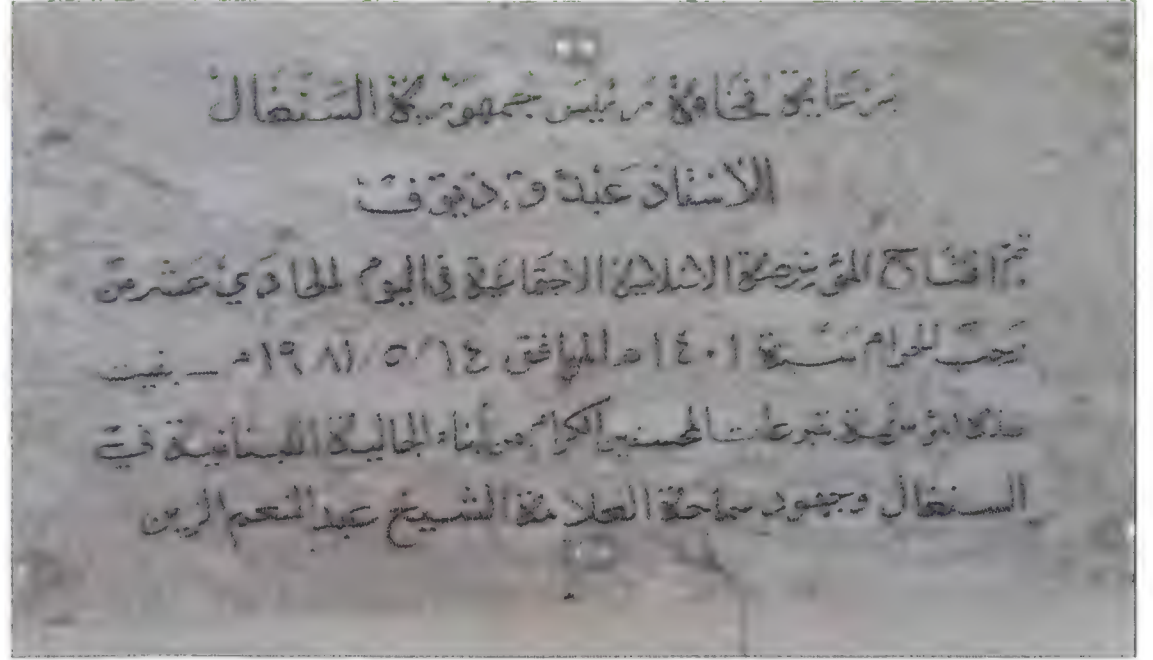 برعاية فخامة رئيس جمهورية السنغال
الأستاذ عبدو ديوف
تم افتتاح المؤسسة الاسلامية الاجتماعية في اليوم الحادي عشر من
رجب الحرام سنة ١٤٠١ه الموافق ١٤/٥/١٩٨١م - بنيت
هذه المؤسسة بتبرعات المحسنين الكرام من أبناء الجالية اللبنانية في
السنغال وجهود سماحة العلامة الشيخ عبد المنعم الزين